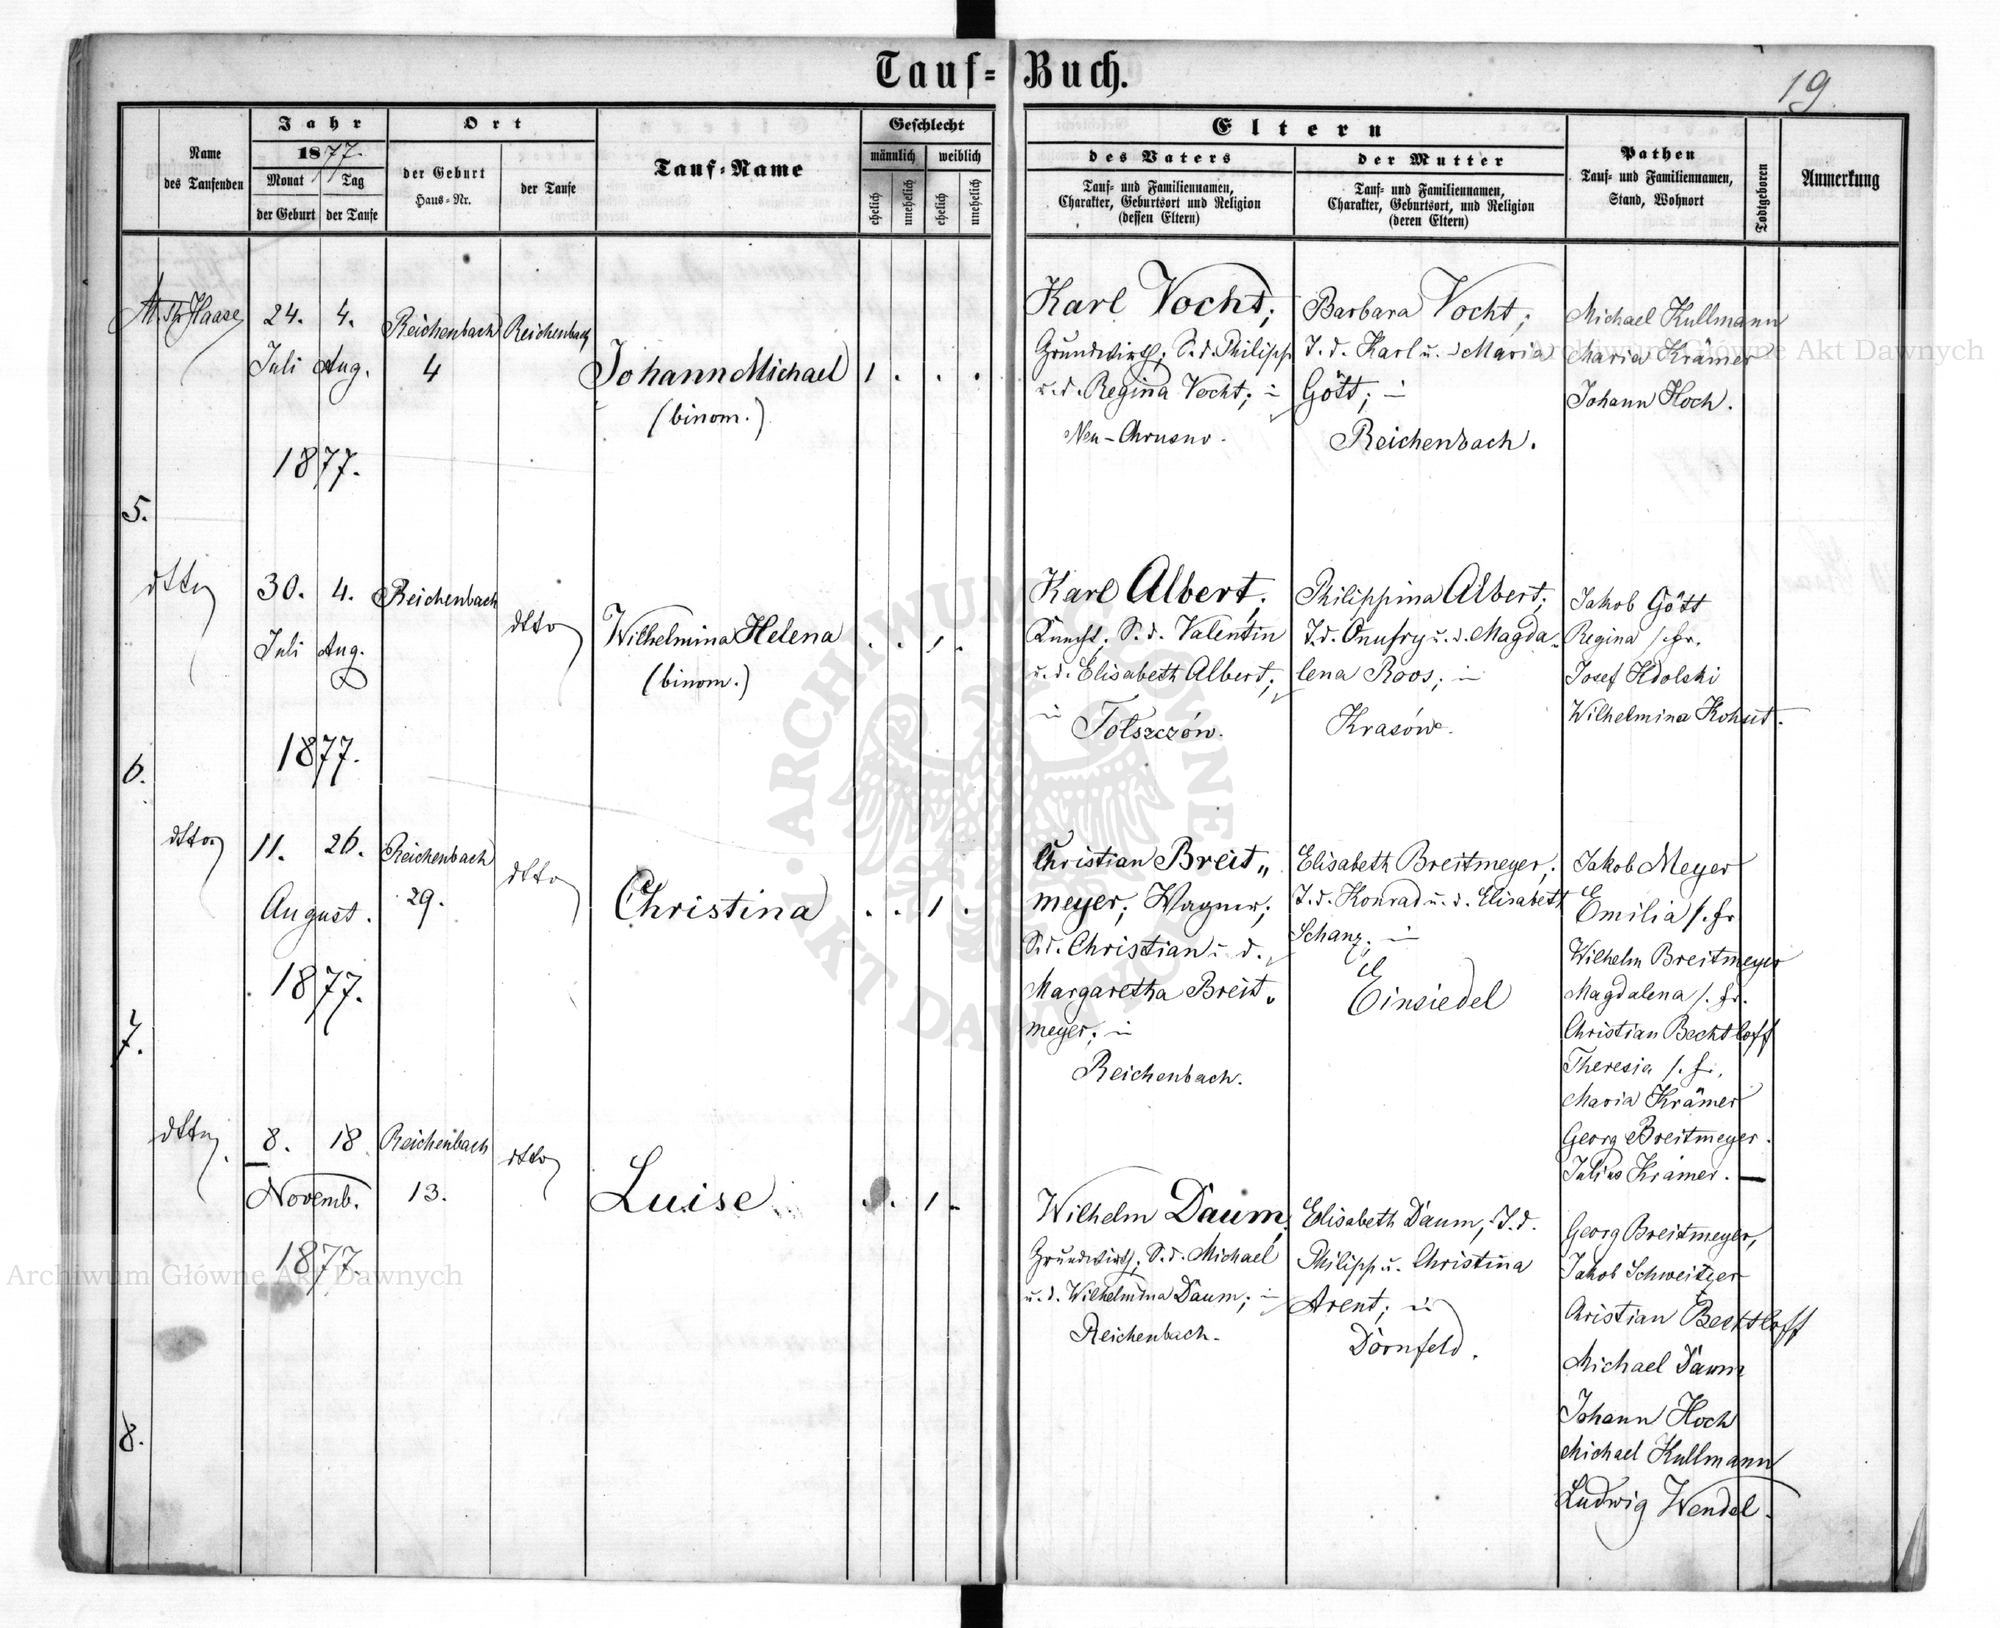 Tauf-Buch.
19
Jahr
Ort
Geschlecht
Eltern
Name
des Taufenden
1877.
der Geburt
Haus-Nr.
der Taufe
Tauf-Name
männlich
weiblich
des Vaters
der Mutter
Pathen
Todtgeboren
Anmerkung
Monat
Tag
der Geburt
der Taufe
ehelich
unehelich
ehelich
unehelich
Tauf- und Familiennamen,
Charakter, Geburtsort und Religion
(dessen Eltern)
Tauf- und Familiennamen,
Charakter, Geburtsort, und Religion
(deren Eltern)
Tauf- und Familiennamen,
Stand, Wohnort
5.
Haase
24. 4.
Juli Aug.
1877.
Reichenbach
4
Reichenbach
Johann Michael
(binom.)
1 . . .
Karl Vocht;
Grundwirth; S. d. Philipp
u. d. Regina Vocht; in
Neu-Chrusno.
Barbara Vocht;
T. d. Karl u. d Maria
Gött; in
Reichenbach.
Michael Kullmann
Maria Krämer
Johann Hoch.
6.
dtto
30. 4.
Juli Aug.
1877.
Reichenbach
dtto
Wilhelmina Helena
(binom.)
. . 1 .
Karl Albert;
Knecht; S. d. Valentin
u. d. Elisabeth Albert;
in
Tołszczów.
Philippina Albert;
T. d. Onufry u. d. Magda-
lena Roos; in
Krasów.
Jakob Gött
Regina s. fr.
Josef Kdolski
Wilhelmina Kohut.
7.
dtto
11. 26.
August.
1877.
Reichenbach
29.
dtto
Christina
. . 1 .
Christian Breit„
meyer; Wagner;
S. d. Christian u. d.
Margaretha Breit„
meyer; in
Reichenbach.
Elisabeth Breitmeyer;
T. d. Konrad u. d. Elisabeth
Schanz; in
Einsiedel
Jakob Meyer
Emilia s. fr
Wilhelm Breitmeyer
Magdalena s. fr.
Christian Bechtloff
Theresia s. fr.
Maria Krämer
Georg Breitmeyer.
Julius Krämer. —
8.
dtto.
8. 18
Novemb.
1877.
Reichenbach
13.
dtto
Luise
. . 1 -
Wilhelm Daum;
Grundwirth; S. d. Michael
u. d. Wilhelmina Daum; in
Reichenbach.
Elisabeth Daum, T. d.
Philipp u. Christina
Arent; in
Dornfeld.
Georg Breitmeyer,
Jakob Schweitzer
Christian Bechtloff
Michael Daum
Johann Hoch
Michael Kullmann
Ludwig Wendel.
Archiwum Główne Akt Dawnych
Archiwum Główne Akt Dawnych
ARCHIWUM GŁÓWNE AKT DAWNYCH